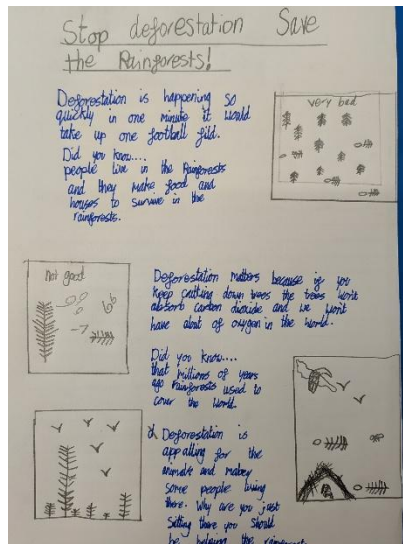 Stop deforestation Save
the Rainforests!
Deforestation is happening so
quickly in one minute it would
take up one football fild.
Did you know....
people live in the Rainforests
and they make food and
houses to survive in the
rainforests.
very bad
not good
Deforestation matters because if you
keep cutting down trees the trees won't
absorb carbon dioxide and we won't
have alot of oxygen in the world.
Did you know....
that millions of years
ago rainforests used to
cover the world.
Deforestation is
appalling for the
animals and mabey
some people living
there. Why are you just
sitting there you should
be helping the rainforest